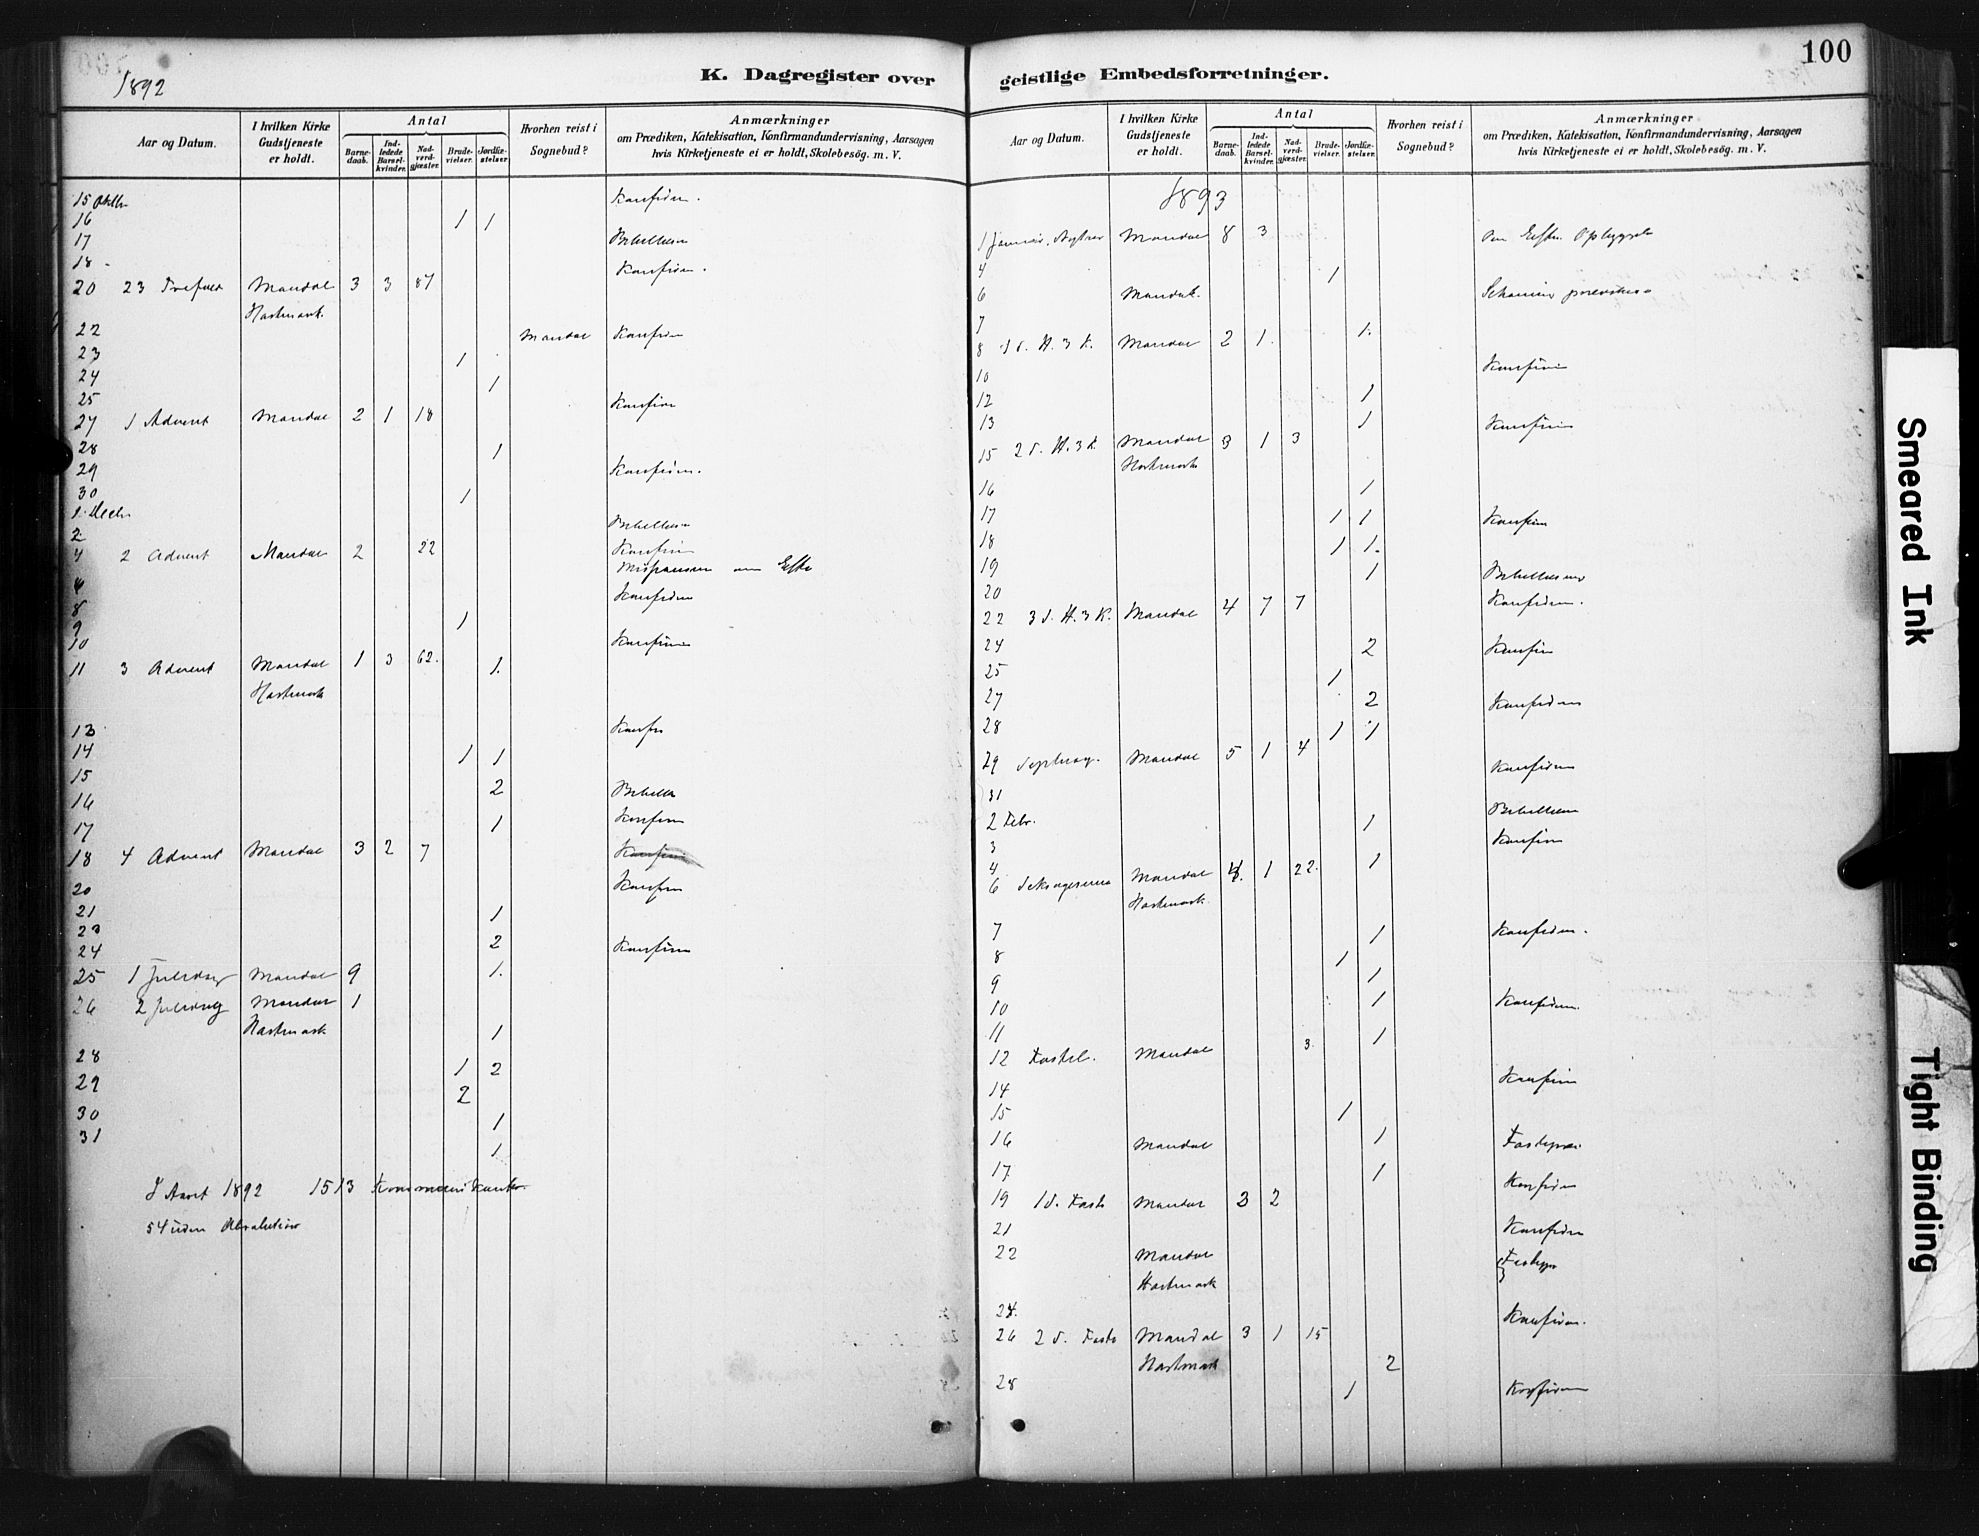 1892
K. Dagregister over
Aar og Datum. I hvilken Kirke Gudstjeneste er holdt. Antal Barnedaab. Indledede Barselkvinder. Nadverdgjæster. Brudevielser. Jordfæstelser. Hvorhen reist i Sognebud? Anmærkninger om Prædiken, Katekisation, Konfirmandundervisning, Aarsagen hvis Kirketjeneste ei er holdt, Skolebesög. m. V.
15 Konfirm.
16 1 1
17 Bibellæsn
18 Konfirm.
20 23 Trefold Mandal 3 3 87
Hartmark.
22 Mandal Konfirm
23 1
24 1
25 Konfirm
27 1 Advent Mandal 2 1 18
28 1
29 Konfirm.
30 1
1 Decbr
2 Bibellæsn
4 2 Advent Mandal 2 22 Konfirm
om Efter
6 Konfirm
8 1
9
10 Konfirm
11 3 Advent Mandal 1 3 62. 1.
Hartmark
13 Konfir
14 1 1
15 2
16 Bibellæ
17 1 Konfirm
18 4 Advent Mandal 3 2 7 Konfirm
20 Konfirm
21 1
23 2
24 Konfirm
25 1 Juledag Mandal 9 1.
26 2 Juledag Mandal 1
Hartmark 1
28 1 2
29 2
30 1
31 1
I Aaret 1892 1513 Kommunikanter.
54 uden Absolution
100
geistlige Embedsforretninger.
Aar og Datum. I hvilken Kirke Gudstjeneste er holdt. Antal Barnedaab. Indledede Barselkvinder. Nadverdgjæster. Brudevielser. Jordfæstelser. Hvorhen reist i Sognebud? Anmærkninger om Prædiken, Katekisation, Konfirmandundervisning, Aarsagen hvis Kirketjeneste ei er holdt, Skolebesög. m. V.
1893
1 Januar, Nytaar Mandal 8 3 Om Efter. Opbyggelse
4 1
6 Mandal.
7 1.
8 1 S. H. 3 K. Mandal 2 1.
10 Konfirm
12 1
13 1 Konfirm
15 2 S. H. 3 K. Mandal 3 1 3
Hartmark
16 1
17 1 1 Konfirm
18 1 1.
19 1 Bibellæsning
20 Konfirm.
22 3 S. H. 3 K. Mandal 4 7 7
24 2 Konfirm
25 1
27 2 Konfirm
28 1 1
29 Septuag. Mandal 5 1 4
31 Konfirm
2 Febr. 1 Bibellæsn
3 Konfirm
4 1
6 Seksagesima Mandal 4. 1 22.
Hartmark.
7 1 Konfirm.
8 1
9 1
10 1 Konfirm.
11 1
12 Fastel. Mandal 3.
14 Konfirm
15 1
16 Mandal 1 Fastepræ
17 1 Konfirm
19 1 S. Faste Mandal 3 2
21 Konfirm
22 Mandal Fastepr
Hartmark
24. Konfirm.
26 2 S. Faste Mandal 3 1 15
Hartmark 2
28 1 Konfirm
Smeared Ink
Tight Binding